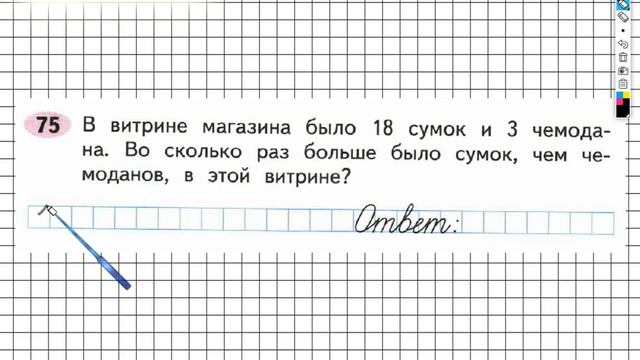 75 В витрине магазина было 18 сумок и 3 чемода-
на. Во сколько раз больше было сумок, чем че-
моданов, в этой витрине?
Ответ: